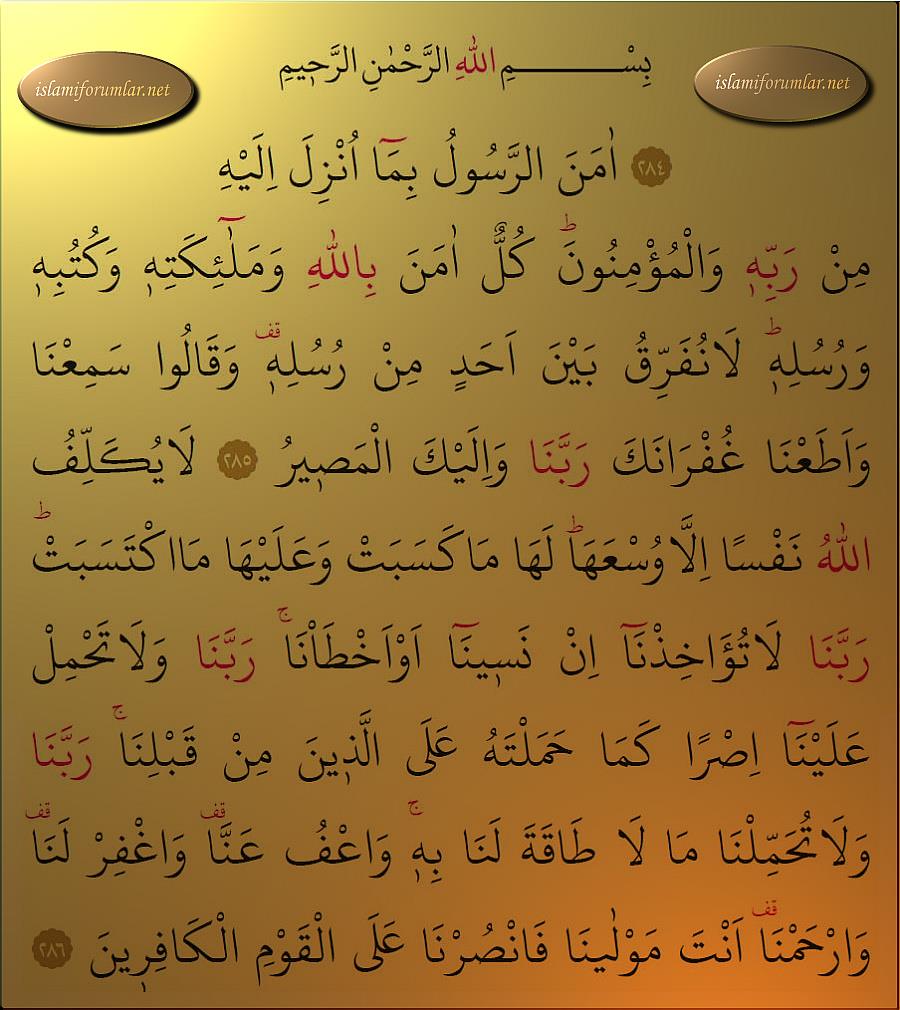 بِسْــــــــــمِ اللّٰهِ الرَّحْمٰنِ الرَّحٖيمِ
islamiforumlar.net
islamiforumlar.net
﴿٢٨٤﴾ اٰمَنَ الرَّسُولُ بِمَٓا اُنْزِلَ اِلَيْهِ
مِنْ رَبِّهٖ وَالْمُؤْمِنُونَؕ كُلٌّ اٰمَنَ بِاللّٰهِ وَمَلٰٓئِكَتِهٖ وَكُتُبِهٖ
وَرُسُلِهٖؕ لَانُفَرِّقُ بَيْنَ اَحَدٍ مِنْ رُسُلِهٖ قف وَقَالُوا سَمِعْنَا
وَاَطَعْنَا غُفْرَانَكَ رَبَّنَا وَاِلَيْكَ الْمَصٖيرُ ﴿٢٨٥﴾ لَايُكَلِّفُ
اللّٰهُ نَفْسًا اِلَّا وُسْعَهَاؕ لَهَا مَاكَسَبَتْ وَعَلَيْهَا مَااكْتَسَبَتْؕ
رَبَّنَا لَاتُؤَاخِذْنَٓا اِنْ نَسٖينَٓا اَوْاَخْطَاْنَاۚ رَبَّنَا وَلَاتَحْمِلْ
عَلَيْنَٓا اِصْرًا كَمَا حَمَلْتَهُ عَلَى الَّذٖينَ مِنْ قَبْلِنَاۚ رَبَّنَا
وَلَاتُحَمِّلْنَا مَا لَا طَاقَةَ لَنَا بِهٖۚ وَاعْفُ عَنَّا قف وَاغْفِرْ لَنَا قف
وَارْحَمْنَا قف اَنْتَ مَوْلٰينَا فَانْصُرْنَا عَلَى الْقَوْمِ الْكَافِرٖينَ ﴿٢٨٦﴾